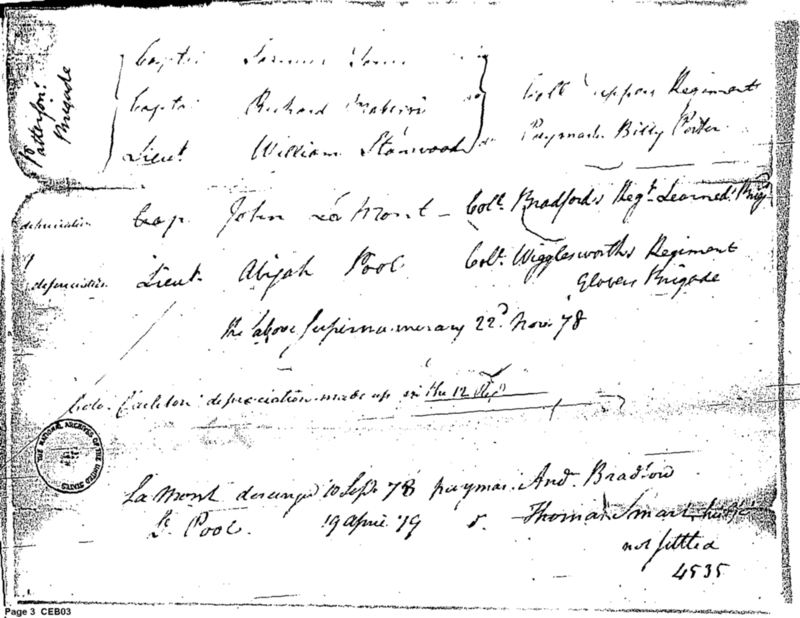 Pattersons
Brigade
Captn
Captn Richard
Lieut William Stanwood do
Colo Uppers Regiment
Paymastr Billy Porter
depreciation Cap. John La Mont - Colo. Bradfords Regt Learneds Brigd
depreciation Lieut. Abijah Pool Colo. Wigglesworths Regiment
Glovers Brigade
the above Supernumerary 22d Nov. 78
Colo. Carleton depreciation made up in the 12
THE NATIONAL ARCHIVES OF THE UNITED STATES
La Mont deranged 10 Sept 78 paymas. And Bradford
Lt Pool. 19 April 79 do. Thomas Smart
not settled
4535
Page 3 CEB03